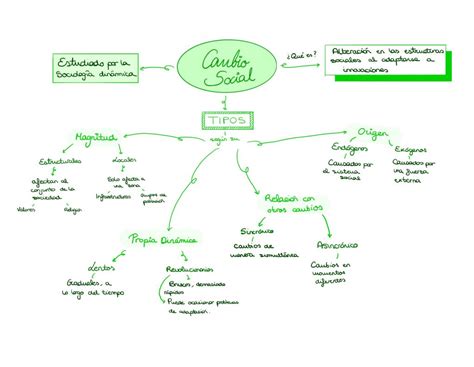 Cambio
Social
Estudiado por la
Sociología dinámica
¿Qué es?
Alteración en las estructuras
sociales al adaptarse a
innovaciones
TIPOS
según su
Magnitud
Estructurales
afectan al
conjunto de la
sociedad
Valores
Religión
Locales
Sólo afecta a
una zona
Infraestructuras
Grupos de
población
Propia Dinámica
Lentos
Graduales, a
lo largo del tiempo
Revolucionarios
Bruscos, demasiado
rápidos
Puede ocasionar problemas
de adaptación.
Relación con
otros cambios
Sincrónico
cambios de
manera simultánea
Asincrónico
Cambios en
momentos
diferentes
Origen
Endógenos
Causados por
el sistema
social
Exógenos
Causados por
una fuerza
externa